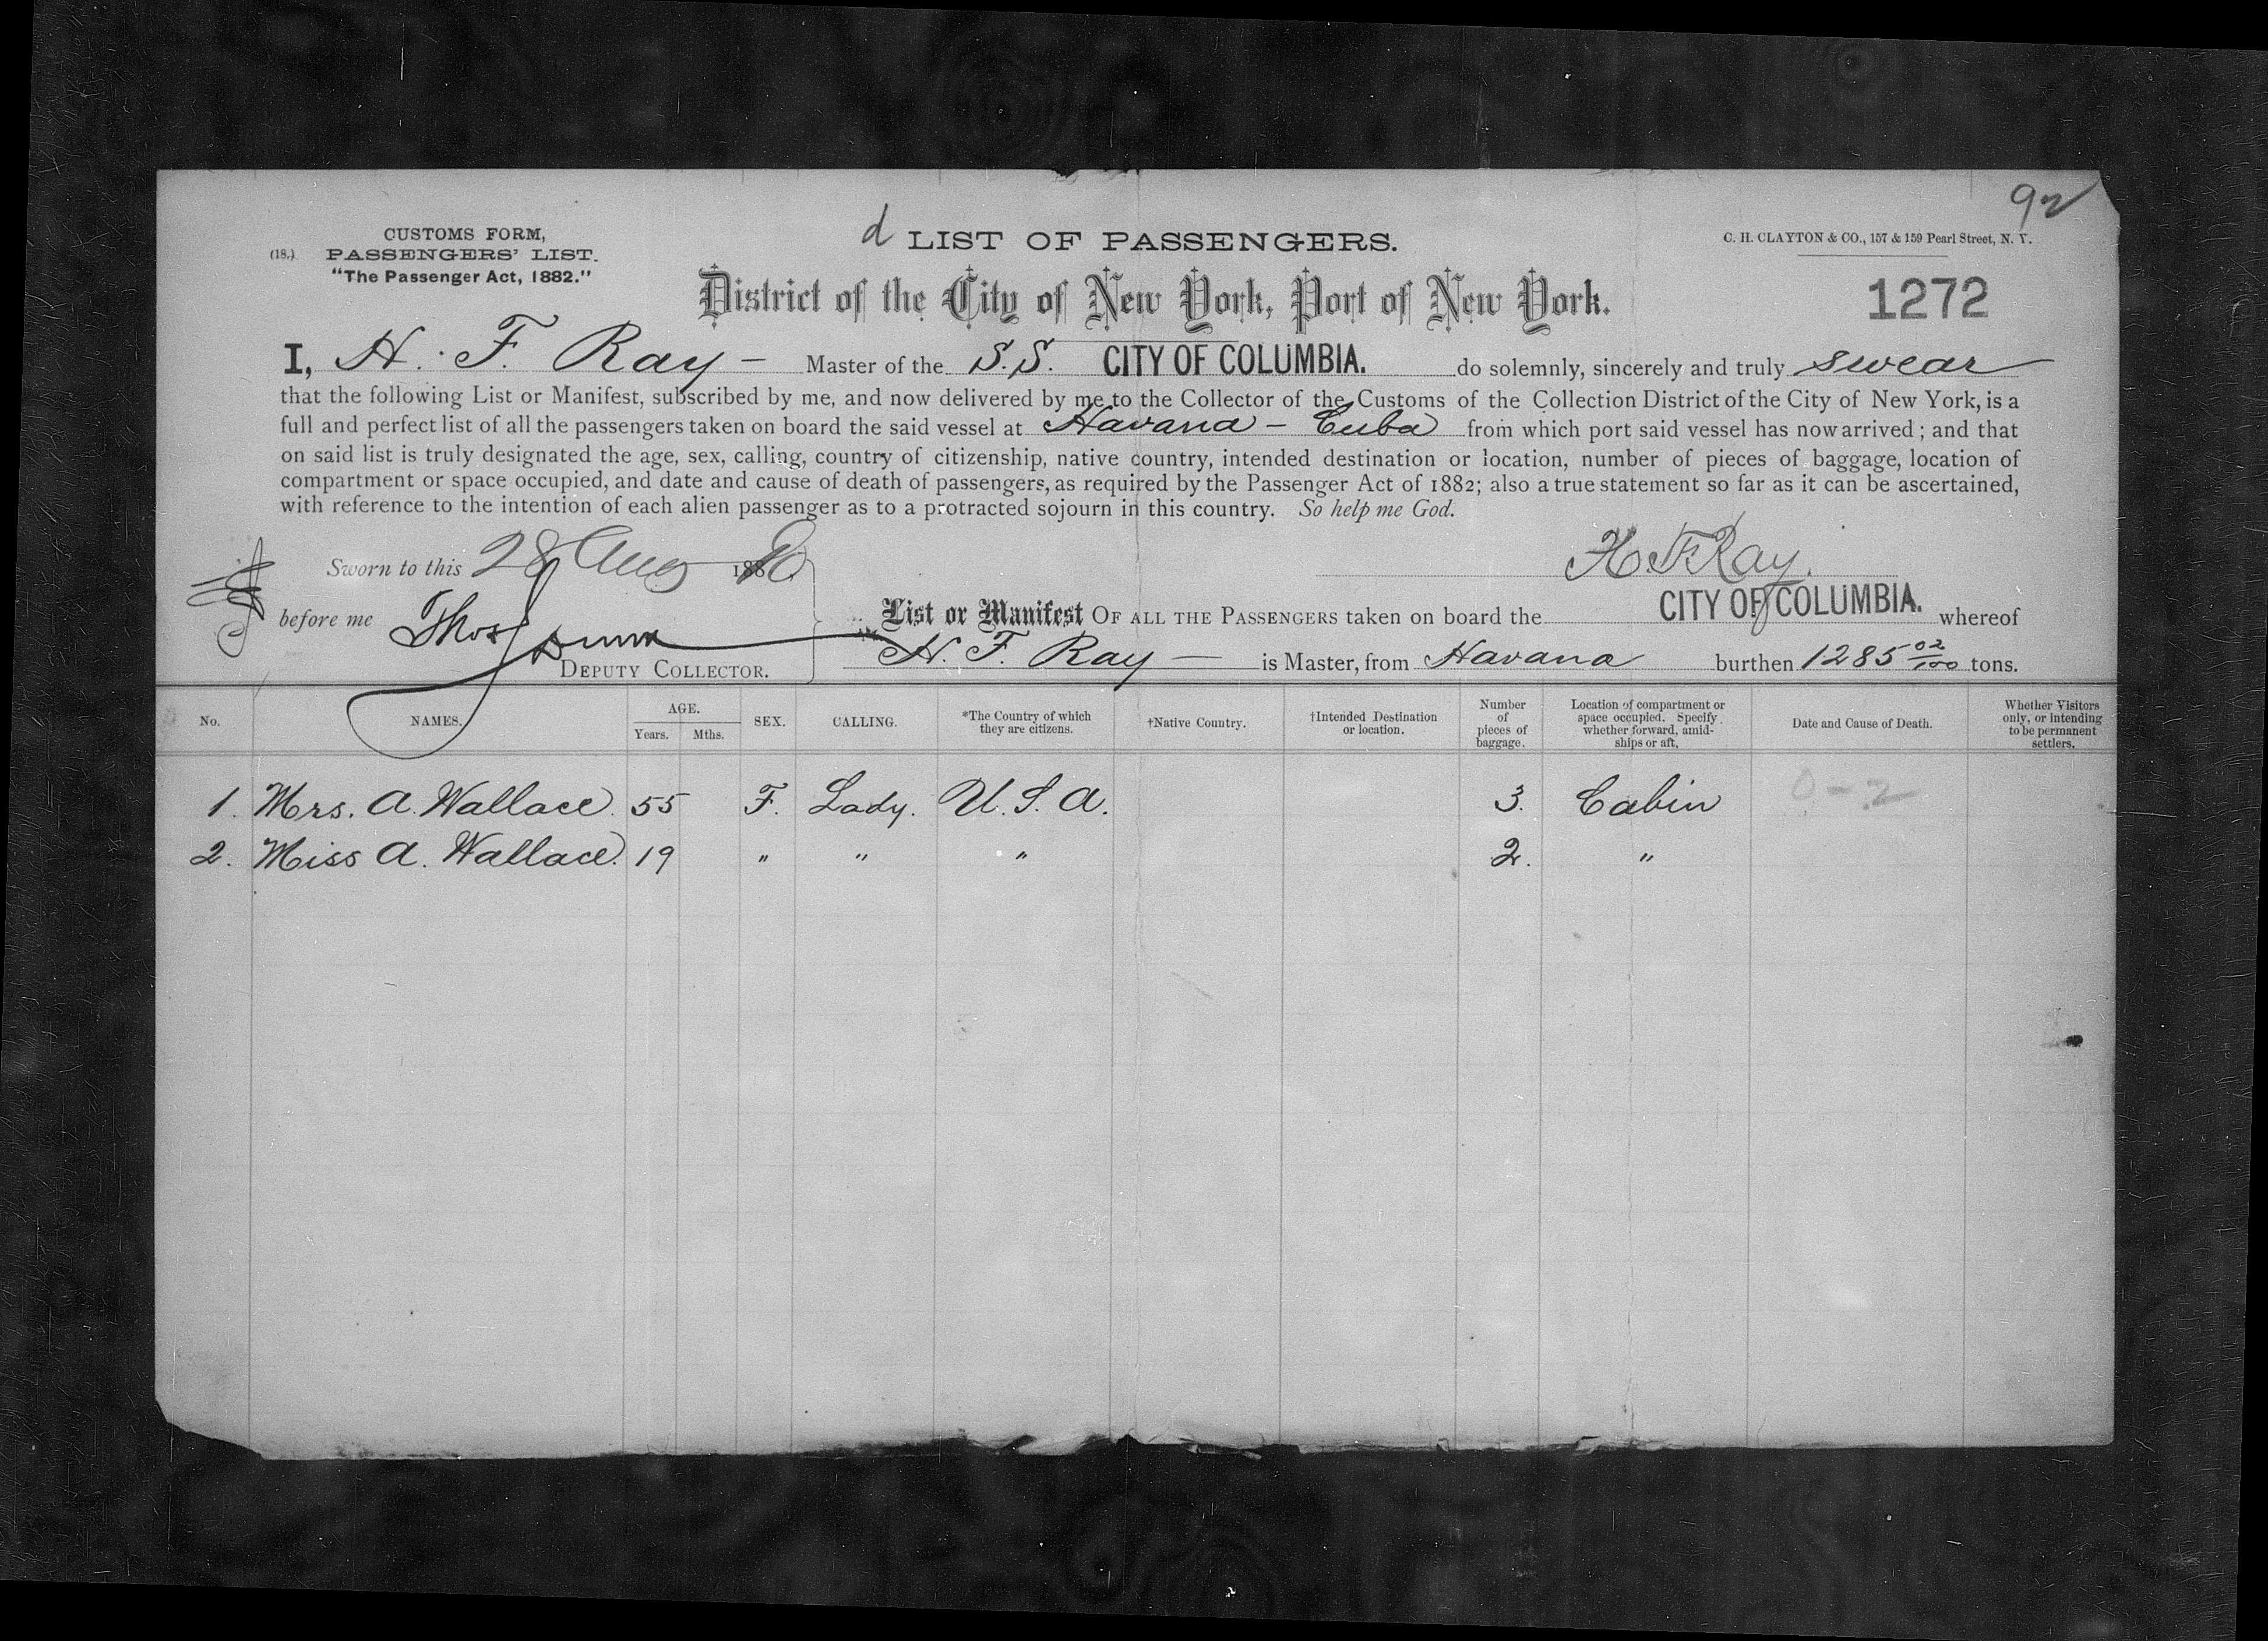 92
d LIST OF PASSENGERS.
CUSTOMS FORM,
(18.) PASSENGERS' LIST.
"The Passenger Act, 1882."
C. H. CLAYTON & CO., 157 & 159 Pearl Street, N. Y.
District of the City of New York, Port of New York.
1272
I, H. F. Ray – Master of the S.S. CITY OF COLUMBIA. do solemnly, sincerely and truly swear
that the following List or Manifest, subscribed by me, and now delivered by me to the Collector of the Customs of the Collection District of the City of New York, is a
full and perfect list of all the passengers taken on board the said vessel at Havana – Cuba from which port said vessel has now arrived; and that
on said list is truly designated the age, sex, calling, country of citizenship, native country, intended destination or location, number of pieces of baggage, location of
compartment or space occupied, and date and cause of death of passengers, as required by the Passenger Act of 1882; also a true statement so far as it can be ascertained,
with reference to the intention of each alien passenger as to a protracted sojourn in this country. So help me God.
Sworn to this 28 Aug 188
H. F. Ray.
before me Thos
DEPUTY COLLECTOR.
List or Manifest OF ALL THE PASSENGERS taken on board the CITY OF COLUMBIA. whereof
H. F. Ray – is Master, from Havana burthen 1285 02/100 tons.
No. NAMES. AGE. Years. Mths. SEX. CALLING. *The Country of which they are citizens. †Native Country. †Intended Destination or location. Number of pieces of baggage. Location of compartment or space occupied. Specify whether forward, amid-ships or aft. Date and Cause of Death. Whether Visitors only, or intending to be permanent settlers.
1. Mrs. A. Wallace. 55 F. Lady. U. S. A. 3. Cabin 0-2
2. Miss A. Wallace. 19 " " " 2. "